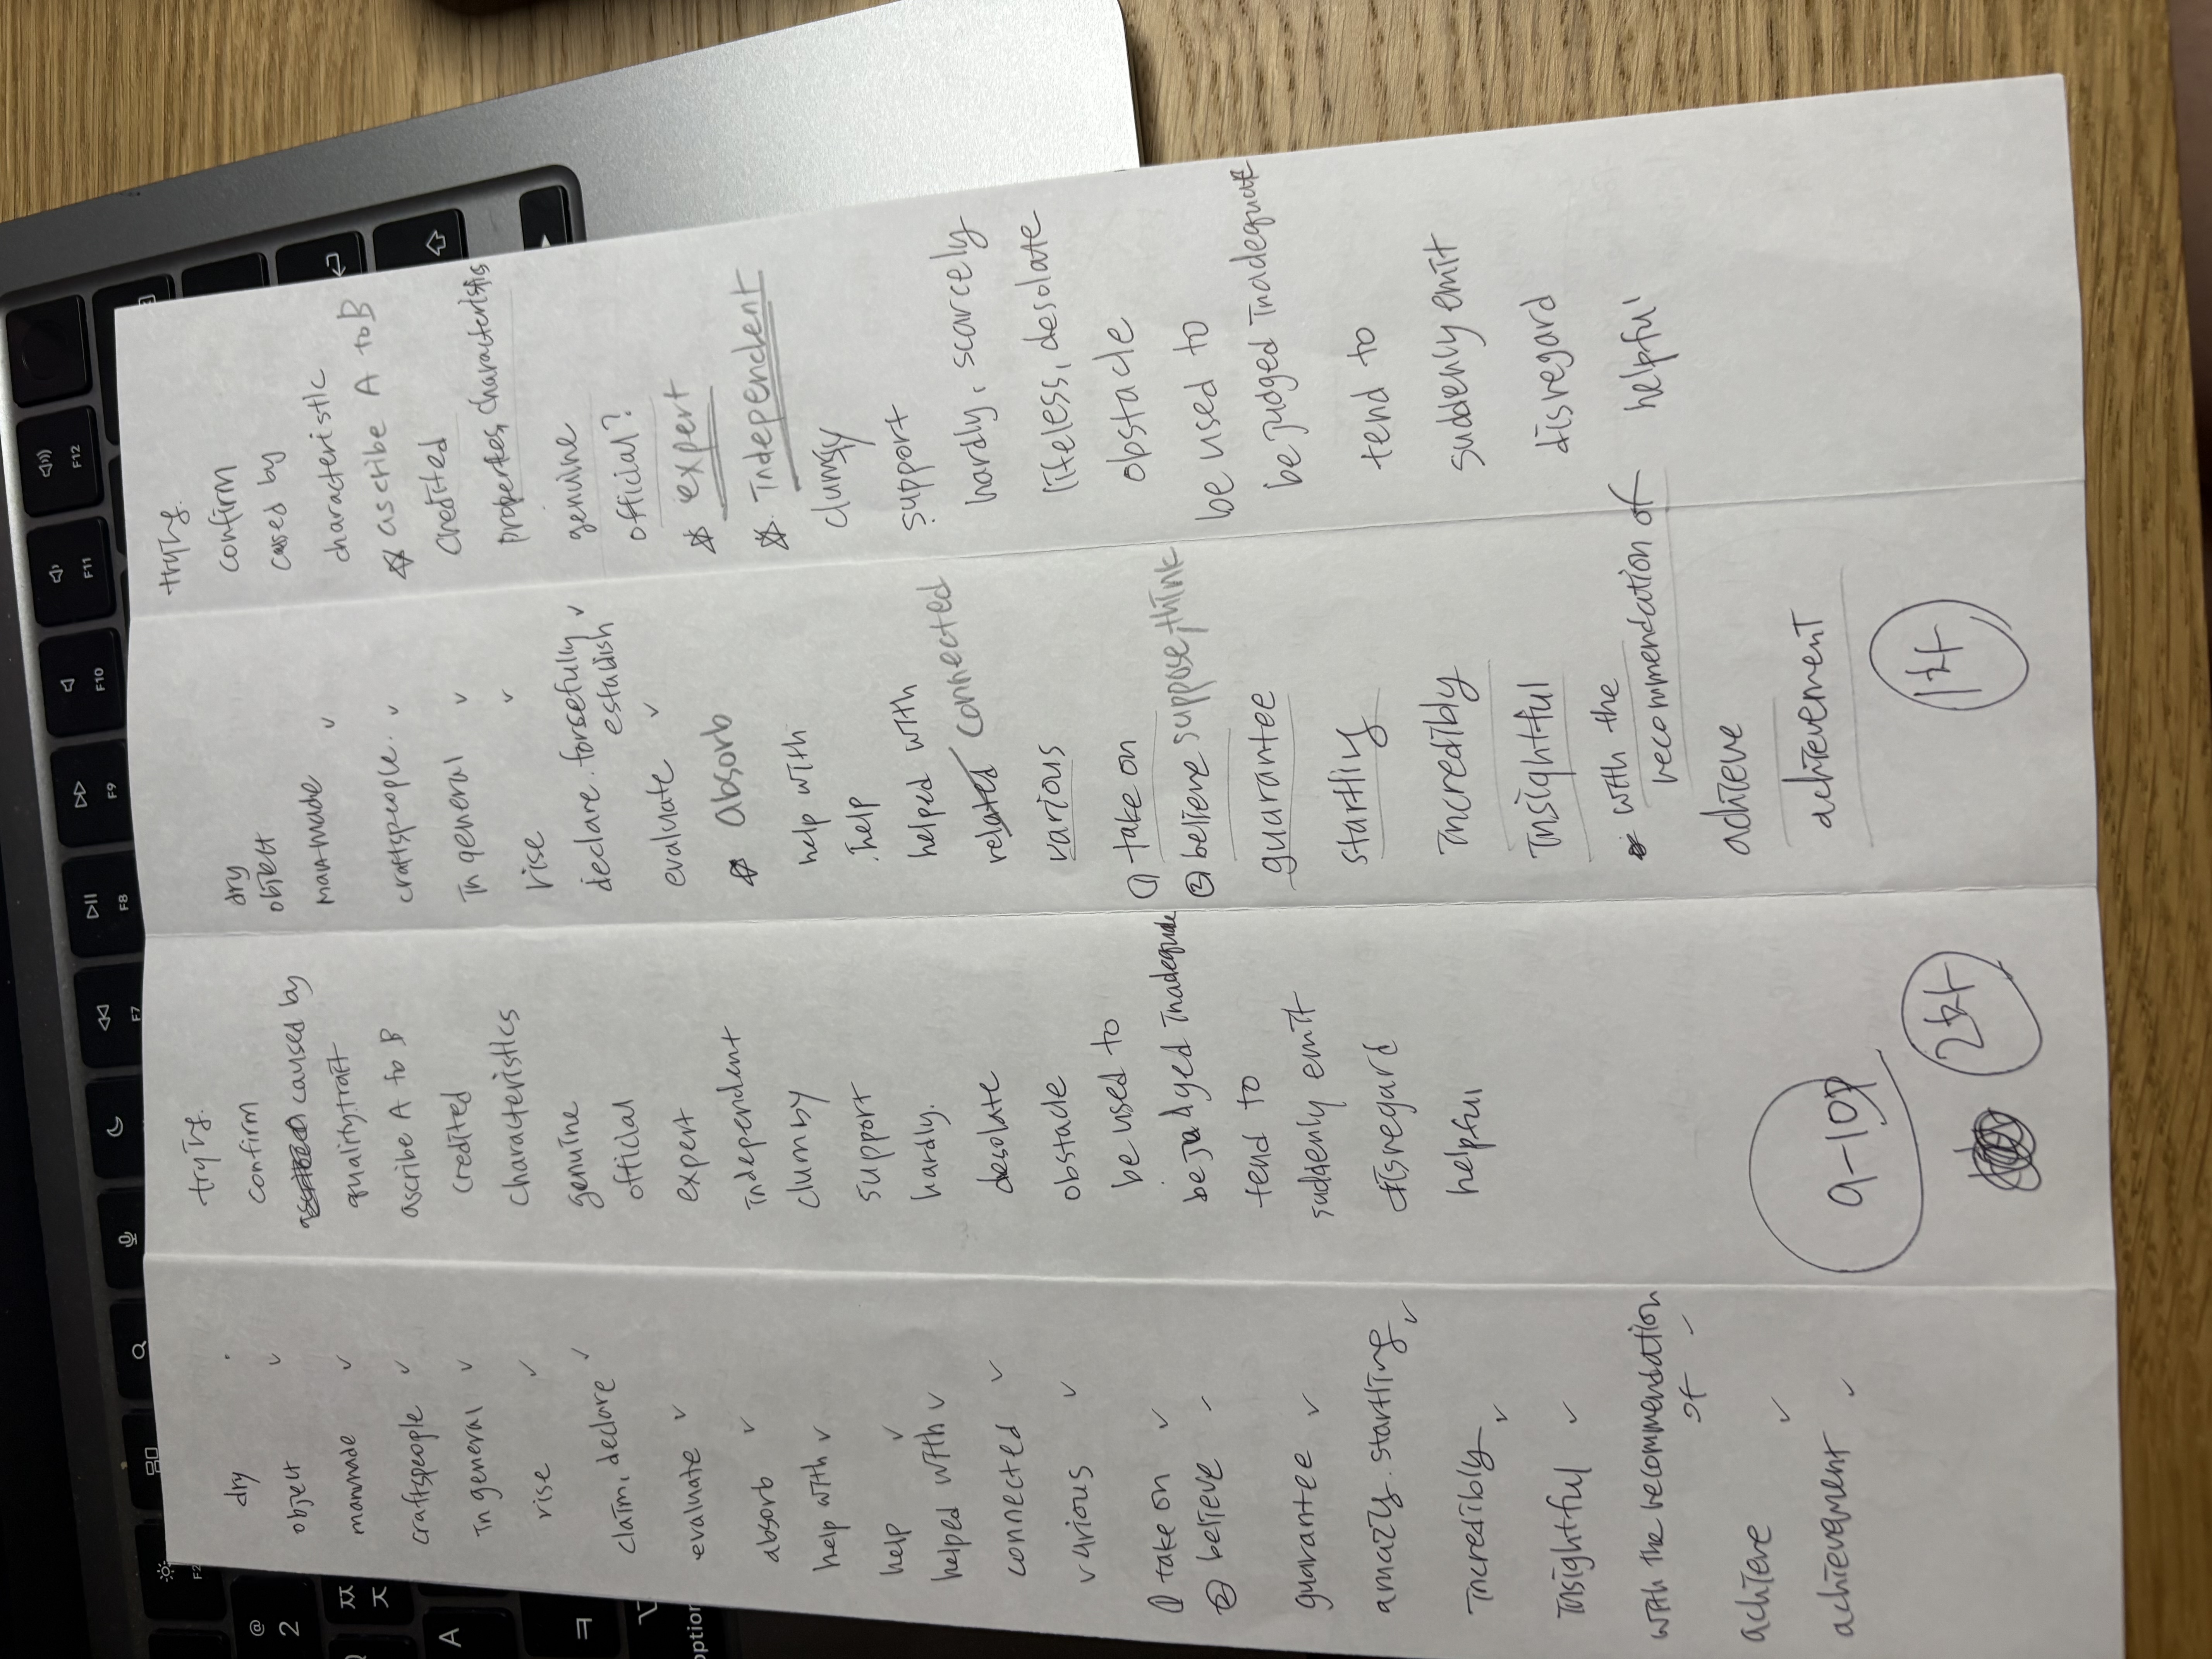 dry
object
manmade
craftspeople
in general
rise
claim, declare
evaluate
absorb
help with
help
helped with
connected
various
① take on
② believe
guarantee
amazing. startling
incredibly
insightful
with the recommendation
of
achieve
achievement
trying.
confirm
caused by
quality, trait
ascribe A to B
credited
characteristics
genuine
official
expert
independent
clumby
support
hardly.
desolate
obstacle
be used to
be judged inadequate
tend to
suddenly emit
disregard
helpful
9-10p
dry
object
man-made
craftspeople.
in general
rise
declare. forsefully
establish
evaluate
absorb
help with
.help
helped with
related connected
various
① take on
② believe suppose, think
guarantee
startling
incredibly
insightful
with the
recommendation of
achieve
achievement
trying.
confirm
cased by
characteristic
ascribe A to B
credited
properties, characteristics
genuine
official?
expert
independent
clumsy
support
hardly, scarcely
lifeless, desolate
obstacle
be used to
be judged inadequate
tend to
suddenly emit
disregard
helpful
F2
F7
F8
F9
F10
F11
F12
@
2
ㅉ
ㅈ
A
ㅋ
option